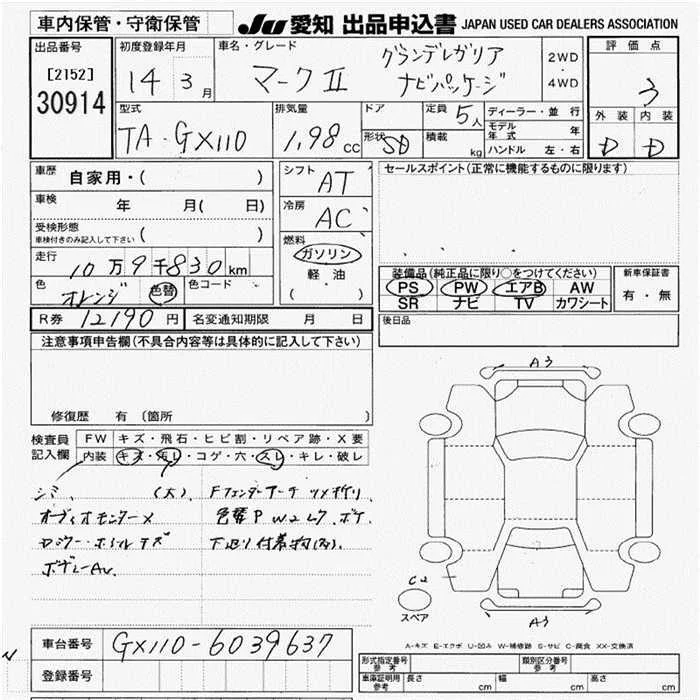 車内保管・守衛保管
JU 愛知 出品申込書 JAPAN USED CAR DEALERS ASSOCIATION
出品番号
[2152]
30914
初度登録年月
14 3 月
車名・グレード
マークII
グランデレガリア
ナビパッケージ
2WD
・
4WD
評価点
3
外装 内装
D D
型式
TA-GX110
排気量
1.98 CC
ドア
形状 SD
定員 5人
積載 kg
ディーラー・並行
モデル年式 年
ハンドル 左・右
車歴
自家用・( )
車検 年 月( 日)
受検形態
車検付きのみ記入して下さい ( )
走行
10万9千830km
色
オレンジ 色替
色コード
シフト AT
冷房 AC
燃料
ガソリン
軽油
( )
セールスポイント(正常に機能するものに限ります)
装備品(純正品に限り○をつけてください)
PS PW エアB AW
SR ナビ TV カワシート
新車保証書
有・無
R券 12190円 名変通知期限 月 日
後日品
注意事項申告欄(不具合内容等は具体的に記入して下さい)
修復歴 有(箇所 )
検査員
記入欄
FW キズ・飛石・ヒビ割・リペア跡・X要
内装 キズ・モレ・コゲ・穴・スレ・キレ・破レ
シミ (大)
オーディオモニター×
Fフェンダーアーチ ツメ折リ
色替P W2ムラ ボケ
ボデー
下廻リ付着物
A3
C2
スペア
A3
A-キズ E-エクボ U-凹み W-補修跡 S-サビ C-腐食 XX-交換済
車台番号 GX110-6039637
登録番号
形式指定番号
参考
類別区分番号
参考
車庫証明用
参考
長さ cm 幅 cm 高さ cm